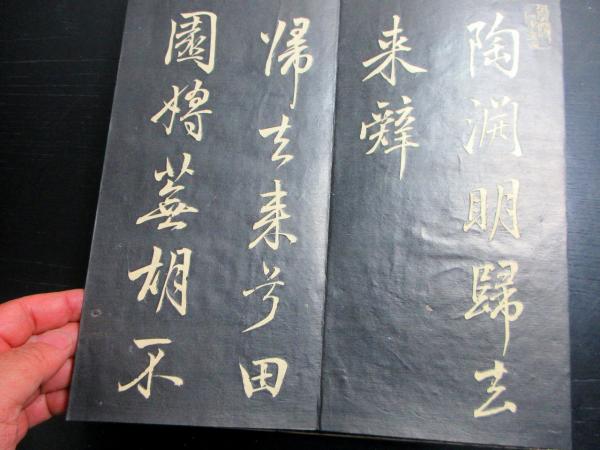 陶淵明歸去
来辭
歸去来兮田
園将蕪胡不